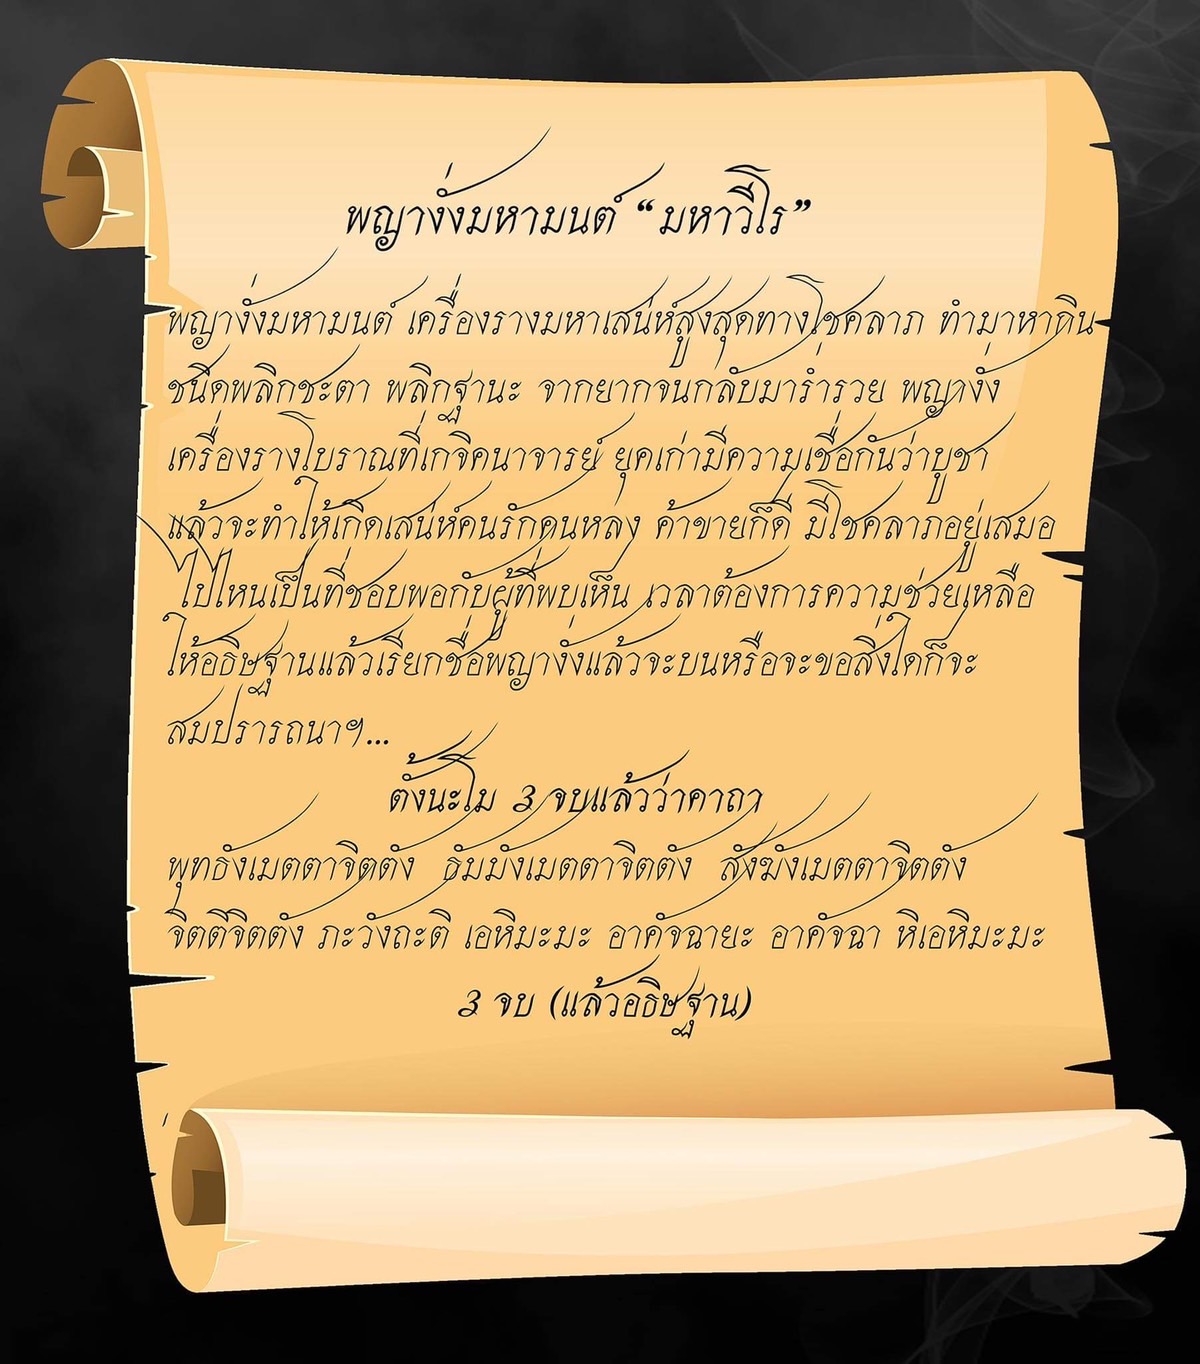 พญางั่งมหามนต์ “มหาวีโร”
พญางั่งมหามนต์ เครื่องรางมหาเสน่ห์สูงสุดทางโชคลาภ ทำมาหากิน
ชนิดพลิกชะตา พลิกฐานะ จากยากจนกลับมาร่ำรวย พญางั่ง
เครื่องรางโบราณที่เกจิคนาจารย์ ยุคเก่ามีความเชื่อกันว่าบูชา
แล้วจะทำให้เกิดเสน่ห์คนรักคนหลง ค้าขายก็ดี มีโชคลาภอยู่เสมอ
ไปไหนเป็นที่ชอบพอกับผู้ที่พบเห็น เวลาต้องการความช่วยเหลือ
ให้อธิษฐานแล้วเรียกชื่อพญางั่งแล้วจะบนหรือจะขอสิ่งใดก็จะ
สมปรารถนาฯ...
ตั้งนะโม 3 จบแล้วว่าคาถา
พุทธังเมตตาจิตตัง ธัมมังเมตตาจิตตัง สังฆังเมตตาจิตตัง
จิตติจิตตัง ภะวังถะติ เอหิมะมะ อาคัจฉายะ อาคัจฉา หิเอหิมะมะ
3 จบ (แล้วอธิษฐาน)